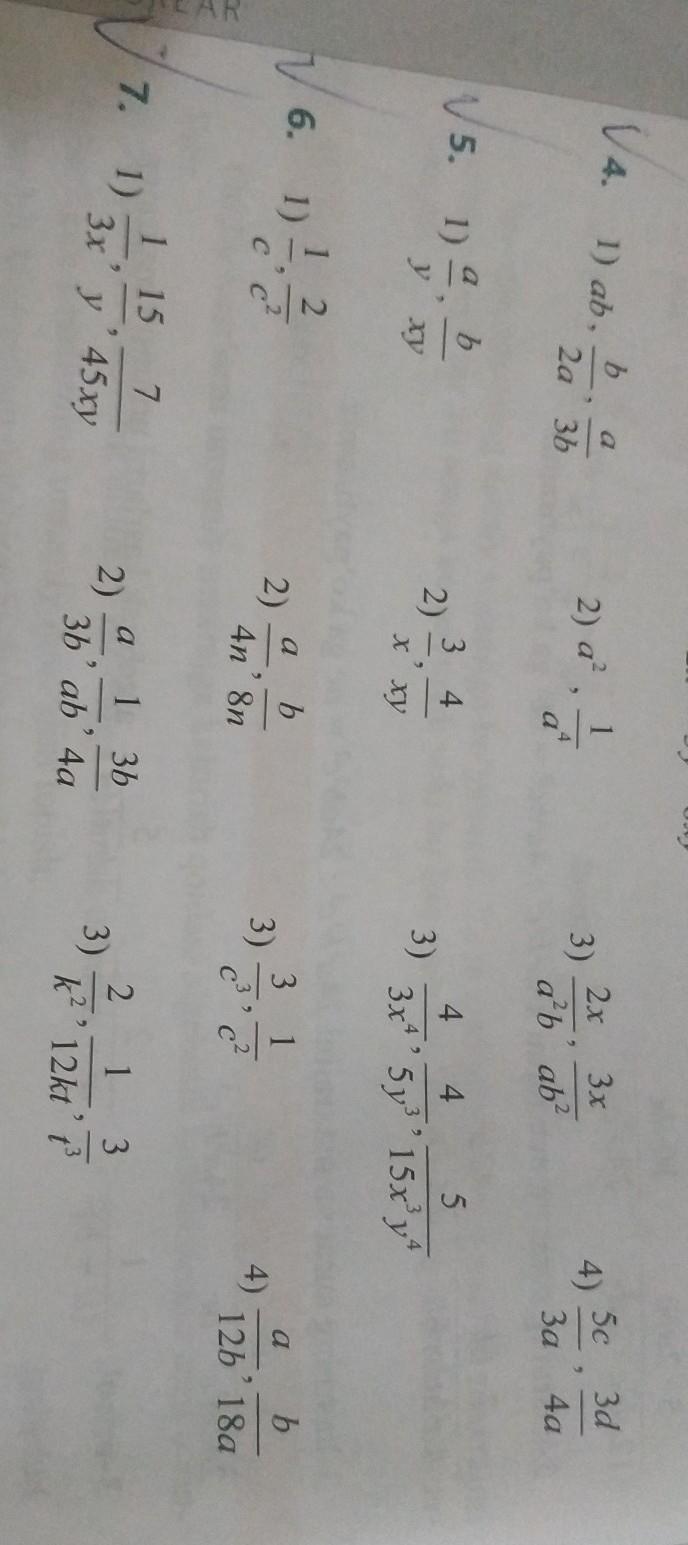 4. 1) ab, b/2a, a/3b 2) a², 1/a⁴ 3) 2x/a²b, 3x/ab² 4) 5c/3a, 3d/4a
5. 1) a/y, b/xy 2) 3/x, 4/xy 3) 4/3x⁴, 4/5y³, 5/15x³y⁴
6. 1) 1/c, 2/c² 2) a/4n, b/8n 3) 3/c³, 1/c² 4) a/12b, b/18a
7. 1) 1/3x, 15/y, 7/45xy 2) a/3b, 1/ab, 3b/4a 3) 2/k², 1/12kt, 3/t³